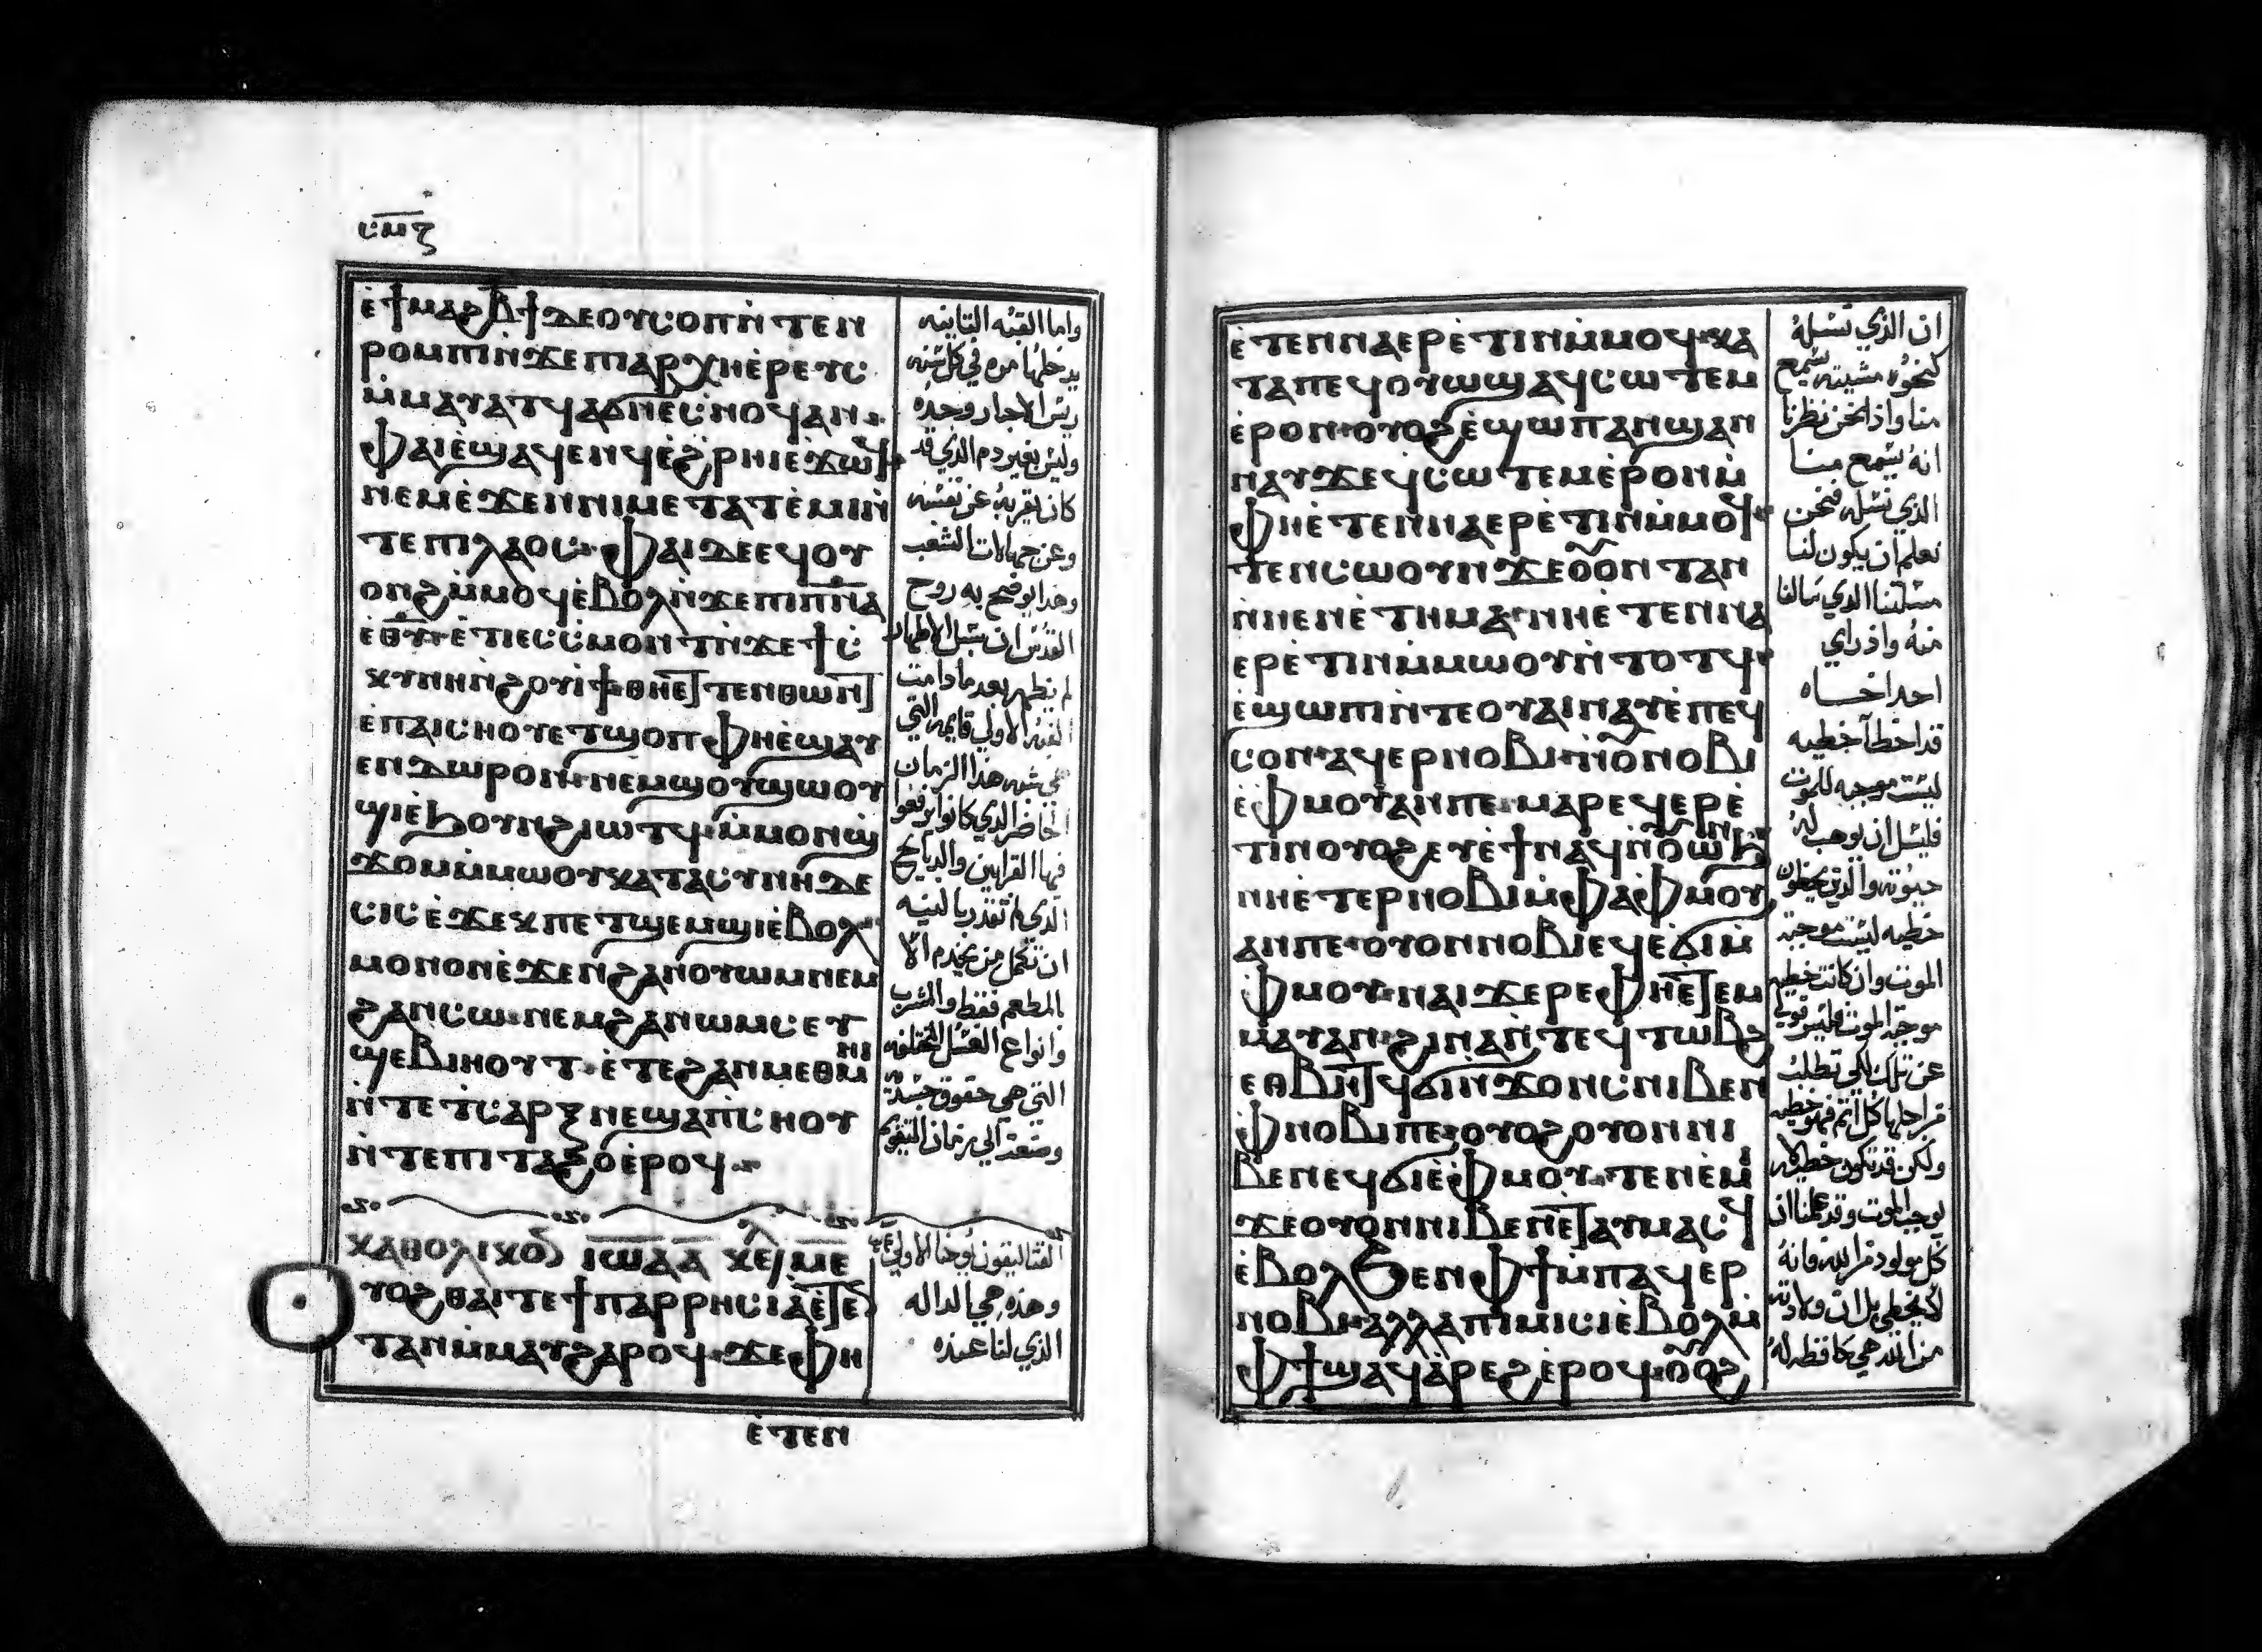 ⲥⲙⲋ
ⲉ̀ϯⲙⲁϩⲃ̄ϯⲇⲉⲟⲩⲥⲟⲡⲛ̀ⲧⲉⲛ
ⲣⲟⲙⲡⲓⲛ̀ϫⲉⲡⲓⲁⲣⲭⲏⲉ̀ⲣⲉⲩⲥ
ⲙ̀ⲙⲁⲩⲁⲧϥⲁϭⲛⲉⲥ̀ⲛⲟϥⲁⲛ
ⲫⲁⲓⲉ̀ϣⲁϥⲉⲛϥⲉ̀ϩⲣⲏⲓⲉϫⲱϥ
ⲛⲉⲙⲉ̀ϫⲉⲛⲛⲓⲙⲉⲧⲁⲧⲉ̀ⲙⲓⲛ̀
ⲧⲉⲡⲓⲗⲁⲟⲥ ⲫⲁⲓⲇⲉⲉϥⲟⲩ
ⲟⲛϩⲙ̀ⲙⲟϥⲉ̀ⲃⲟⲗⲛ̀ϫⲉⲡⲓⲡ̅ⲛ̅ⲁ
ⲉ̀ⲑⲩ ⲉ̀ⲧⲓⲉⲥⲥ̀ⲙⲟⲛⲧⲛ̀ϫⲉϯⲥ̀
ⲕⲩⲛⲏⲛ̀ϩⲟⲩⲓϯ ⲑⲏⲉⲧⲧⲉⲛⲑⲱⲛⲧ
ⲉ̀ⲡⲁⲓⲥⲏⲟⲩⲉⲧϣⲟⲡ ⲫⲏⲉ̀ϣⲁⲩ
ⲉⲛⲇⲱⲣⲟⲛ ⲛⲉⲙϣⲟⲩϣⲱⲟⲩ
ϣⲓⲉ̀ϧⲟⲩⲛϩⲓⲱⲧϥ ⲙ̀ⲙⲟⲛϣ̀
ϫⲟⲙⲙ̀ⲙⲱⲟⲩⲕⲁⲧⲁⲥⲩⲛⲏⲇⲉ
ⲥⲓⲥⲉ̀ϫⲉⲕⲡⲉⲧϣⲉⲙϣⲓⲉ̀ⲃⲟⲗ
ⲙⲟⲛⲟⲛⲉ̀ϫⲉⲛϩⲁⲛⲟⲩⲱⲙⲛⲉⲙ
ϩⲁⲛⲥⲱ ⲛⲉⲙϩⲁⲛⲱⲙⲥⲉⲩ
ϣⲉⲃⲓⲏⲟⲩⲧ ⲉ̀ⲧⲉϩⲁⲛⲙⲉⲑⲙⲏⲓ
ⲛ̀ⲧⲉⲧⲥⲁⲣⲝⲛⲉϣⲁⲡⲥ̀ⲏⲟⲩ
ⲛ̀ⲧⲉⲡⲓⲧⲁϩⲟⲉ̀ⲣⲟϥ
ⲕⲁⲑⲟⲗⲓⲕⲟⲛ ⲓⲱⲁ ⲁ̅ ⲕⲉ ⲙⲉ
ⲩⲟϩⲑⲁⲓⲧⲉϯⲡⲁⲣⲣⲏⲥⲓⲁⲉ̀ⲧⲉ
ⲧⲁⲛⲙ̀ⲙⲁⲩϩⲁⲣⲟϥ ϫⲉⲫⲏ
ⲉ̀ⲧⲉⲛ
واما القبه التانيه
يدخلها مره في كل سنه
ريس الاحبار وحده
وليس بغير دم الذي قد
كان يقربه عن نفسه
وعن جهالات الشعب
وهذا يوضح به روح
القدس ان سبل الاطهار
لم تظهر بعد ما دامت
القبه الاولي قايمه التي
هي شبه هذا الزمان
الحاضر الذي كانوا يرفعوا
فيها القرابين والدبايح
الذي لم تقدر بالنيه
ان تكمل من يخدم الا
بالمطعم فقط والمشرب
وانواع الغسل المختلفه
التي هي حقوق جسديه
وضعت الي زمان التقويم
القتاليقون يوحنا الاولي
وهذه هي الداله
الذي لنا عنده
ⲉ̀ⲧⲉⲛⲛⲁⲉⲣⲉ̀ⲧⲓⲛⲙ̀ⲙⲟϥ ⲕⲁ
ⲧⲁⲡⲉϥⲟⲩⲱϣ ϣⲁϥⲥⲱⲧⲉⲙ
ⲉ̀ⲣⲟⲛ ⲟⲩⲟϩ ⲉ̀ϣⲱⲡⲁⲛϣⲁⲛ
ⲛⲁⲩϫⲉϥⲥⲱⲧⲉⲙⲉ̀ⲣⲟⲛⲙ̀
ⲫⲏⲉ̀ⲧⲉⲛⲛⲁⲉⲣⲉ̀ⲧⲓⲛⲙ̀ⲙⲟϥ
ⲧⲉⲛⲥⲱⲟⲩⲛϫⲉⲟⲟⲛⲧⲁⲛ
ⲛ̀ⲛⲉⲛⲉ̀ⲧⲏⲙⲁ ⲛⲏⲉ̀ⲧⲉⲛⲛⲁ
ⲉⲣⲉ̀ⲧⲓⲛⲙ̀ⲙⲱⲟⲩⲛ̀ⲧⲟⲧϥ
ⲉ̀ϣⲱⲡⲓⲛ̀ⲧⲉⲟⲩⲁⲓⲛⲁⲩⲉ̀ⲡⲉϥ
ⲥⲟⲛ ⲁϥⲉⲣⲛⲟⲃⲓ ⲛ̀ⲟⲛⲟⲃⲓ
ⲉ̀ⲫⲙⲟⲩⲁⲛⲡⲉ ⲙⲁⲣⲉϥⲉⲣⲉ̀
ⲧⲓⲛⲟⲩⲟϩⲉⲩⲉ̀ϯⲛⲁϥⲛ̀ⲟⲱⲛϧ
ⲛⲏⲉ̀ⲧⲉⲣⲛⲟⲃⲓⲙ̀ⲫⲁⲫⲙⲟⲩ
ⲁⲛⲡⲉ ⲟⲩⲟⲛⲛⲟⲃⲓⲉϥⲉ̀ϭⲓⲙ̀
ⲫⲙⲟⲩ ⲛⲁⲓϫⲉⲣⲉⲫⲏⲉⲧⲉⲙ
ⲙⲁⲩⲁⲛ ϩⲓⲛⲁⲛ̀ⲧⲉϥⲧⲱⲃϩ
ⲉⲑⲃⲏⲧϥϭⲓⲛϫⲟⲛⲥⲛⲓⲃⲉⲛ
ⲫⲛⲟⲃⲓⲡⲉ ⲟⲩⲟϩⲟⲩⲟⲛⲛⲓ
ⲃⲉⲛⲉϥϭⲓⲉ̀ⲫⲙⲟⲩ ⲧⲉⲛⲉ̀ⲙⲓ
ϫⲉⲟⲩⲟⲛⲛⲓⲃⲉⲛⲉⲧⲁⲩⲙⲁⲥϥ
ⲉ̀ⲃⲟⲗϧⲉⲛⲫϯⲙ̀ⲡⲁϥⲉⲣ
ⲛⲟⲃⲓ ⲁⲗⲗⲁⲡⲓⲙⲓⲥⲓⲉ̀ⲃⲟⲗⲙ̀
ⲫϯϣⲁϥⲁ̀ⲣⲉϩⲉ̀ⲣⲟϥ ⲟⲟϩ
ان الذي نسله
كنحو مشيته يسمع
منا واذا نحن نظرنا
انه يسمع منا
الذي نسله فنحن
نعلم ان يكون لنا
مسلتنا الذي سالنا
منه واذ راي
احد اخاه
قد اخطا خطيه
ليست موجبه للموت
فليسل ان يوهب له
حيوته والذين يخطون
خطيه ليست موجبة
الموت وان كانت خطيه
موجبة الموت فليس قولي
عن تلك لكي تطلب
من اجلها كل اثم فهو خطيه
ولكن قد تكون خطيه لا
توجب الموت وقد علمنا ان
كل مولود من الله فانه
لا يخطي بل ان ولادته
من الله هي حافظه له